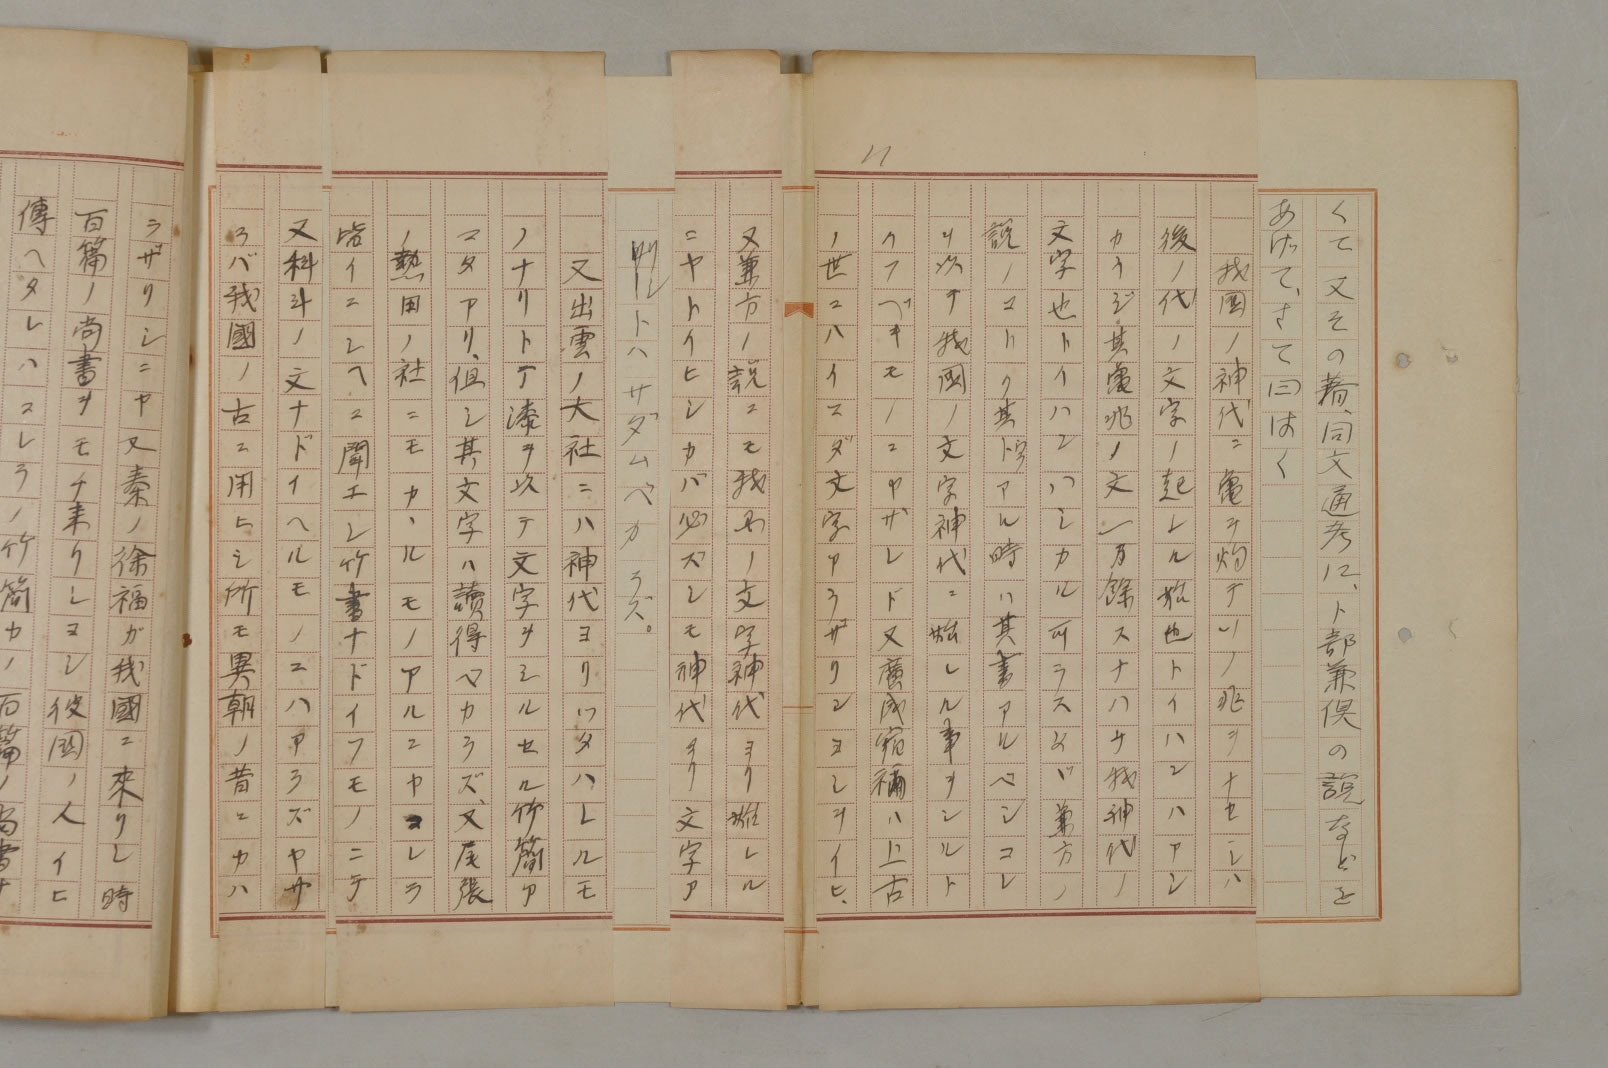 くて又その著、同文通考に、卜部兼倶の説などを
あげて、さて曰はく
我國ノ神代ニ亀ヲ灼テソノ兆ヲナセシハ
後ノ代ノ文字ノ起レル始也トイハンハアシ
カラジ其亀兆ノ文一万餘スナハチ我神代ノ
文字也トイハンハシカル可ラス又ド兼方ノ
説ノコトク其字アル時ハ其書アルベシコレ
ヲ以テ我國ノ文字神代ニ始レル事ヲシルト
クフベキモノニヤサレド又廣成宿禰ハ上古
ノ世ニハイマダ文字アラザリシヨシヲイヒ、
又兼方ノ説ニモ我國ノ文字神代ヨリ始レル
ニヤトイヒシカバ必ズシモ神代ヨリ文字ア
リシトハサダムベカラズ。
又出雲ノ大社ニハ神代ヨリワタハレルモ
ノナリトテ漆ヲ以テ文字ヲシルセル竹簡ア
マタアリ、但シ其文字ハ讀得ベカラズ、又尾張
ノ熱田ノ社ニモカヽルモノアルニヤコレラ
皆イニシヘニ聞エシ竹書ナドイフモノニテ
又科斗ノ文ナドイヘルモノニハアラズヤサ
ラバ我國ノ古ニ用ヒシ所モ異朝ノ昔ニカハ
ラザリシニヤ又秦ノ徐福ガ我國ニ來リシ時
百篇ノ尚書ヲモチ來リシヨシ彼國ノ人イヒ
傳ヘタレハコレラノ竹簡カノ百篇ノ尚書ナ